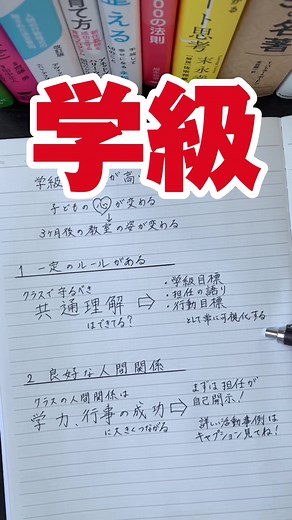 育て方
整える
00の法則
ート思考
末永
の名著
学級
学級 が高
子どもの心が変わる
3ヶ月後の教室の姿が変わる
1 一定のルールがある
クラスで守るべき
共通理解
はできてる？
・学級目標
・担任の語り
・行動目標
として常に可視化する
2 良好な人間関係
クラスの人間関係は
学力、行事の成功
に大きくつながる
まずは担任が
自己開示！
詳しい活動事例は
キャプション見てね！